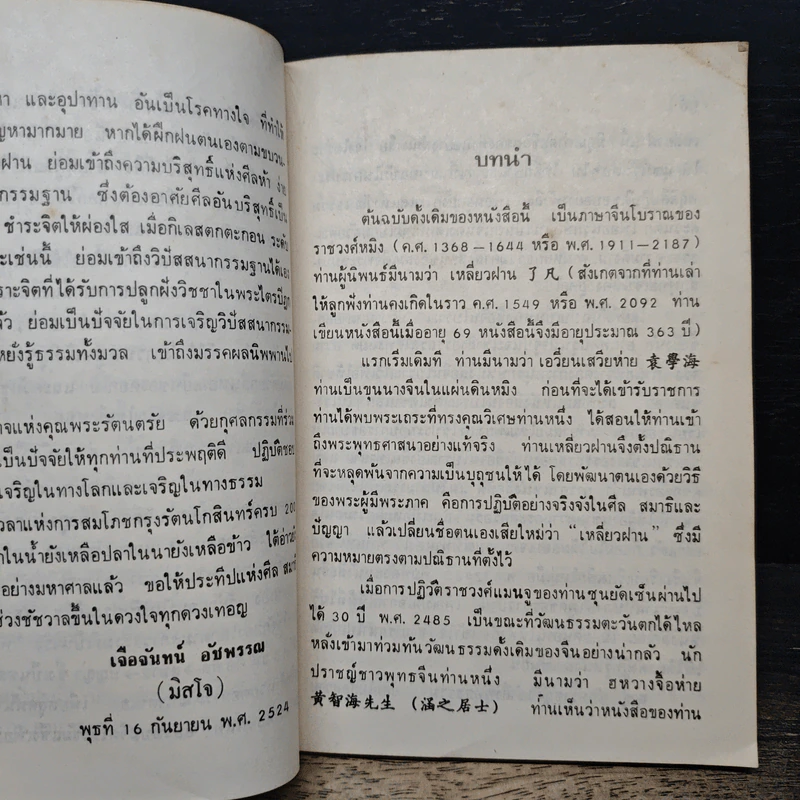 และอุปาทาน อันเป็นโรคทางใจ ที่ทำให้
มากมาย หากได้ฝึกฝนตนเองตามขบวน
ย่อมเข้าถึงความบริสุทธิ์แห่งศีลห้า ง่าย
ซึ่งต้องอาศัยศีลอันบริสุทธิ์เป็น
ชำระจิตให้ผ่องใส เมื่อกิเลสตกตะกอน ระดับ
เช่นนี้ ย่อมเข้าถึงวิปัสสนากรรมฐานได้เอง
จิตที่ได้รับการปลูกฝังวิชชาในพระไตรปิฎก
ย่อมเป็นปัจจัยในการเจริญวิปัสสนากรรม-
หยั่งรู้ธรรมทั้งมวล เข้าถึงมรรคผลนิพพาน
แห่งคุณพระรัตนตรัย ด้วยกุศลกรรมที่ร่วม
เป็นปัจจัยให้ทุกท่านที่ประพฤติดี ปฏิบัติชอบ
เจริญในทางโลกและเจริญในทางธรรม
แห่งการสมโภชกรุงรัตนโกสินทร์ครบ 200
ในน้ำยังเหลือปลาในนายังเหลือข้าว ได้
อย่างมหาศาลแล้ว ขอให้ประทีปแห่งศีล
ช่วงชัชวาลขึ้นในดวงใจทุกดวงเทอญ
เจือจันทน์ อัชพรรณ
(มิสโจ)
พุธที่ 16 กันยายน พ.ศ. 2524
บทนำ
ต้นฉบับดั้งเดิมของหนังสือนี้ เป็นภาษาจีนโบราณของ
ราชวงศ์หมิง (ค.ศ. 1368–1644 หรือ พ.ศ. 1911–2187)
ท่านผู้นิพนธ์มีนามว่า เหลี่ยวฝาน 了凡 (สังเกตจากที่ท่านเล่า
ให้ลูกฟังท่านคงเกิดในราว ค.ศ. 1549 หรือ พ.ศ. 2092 ท่าน
เขียนหนังสือนี้เมื่ออายุ 69 หนังสือนี้จึงมีอายุประมาณ 363 ปี)
แรกเริ่มเดิมที ท่านมีนามว่า เอวี๋ยนเสวียห่าย 袁學海
ท่านเป็นขุนนางจีนในแผ่นดินหมิง ก่อนที่จะได้เข้ารับราชการ
ท่านได้พบพระเถระที่ทรงคุณวิเศษท่านหนึ่ง ได้สอนให้ท่านเข้า
ถึงพระพุทธศาสนาอย่างแท้จริง ท่านเหลี่ยวฝานจึงตั้งปณิธาน
ที่จะหลุดพ้นจากความเป็นบุถุชนให้ได้ โดยพัฒนาตนเองด้วยวิธี
ของพระผู้มีพระภาค คือการปฏิบัติอย่างจริงจังในศีล สมาธิและ
ปัญญา แล้วเปลี่ยนชื่อตนเองเสียใหม่ว่า “เหลี่ยวฝาน” ซึ่งมี
ความหมายตรงตามปณิธานที่ตั้งไว้
เมื่อการปฏิวัติราชวงศ์แมนจูของท่านซุนยัดเซ็นผ่านไป
ได้ 30 ปี พ.ศ. 2485 เป็นขณะที่วัฒนธรรมตะวันตกได้ไหล
หลั่งเข้ามาท่วมท้นวัฒนธรรมดั้งเดิมของจีนอย่างน่ากลัว นัก
ปราชญ์ชาวพุทธจีนท่านหนึ่ง มีนามว่า ฮหวางจื้อห่าย
黃智海先生 (涵之居士) ท่านเห็นว่าหนังสือของท่าน